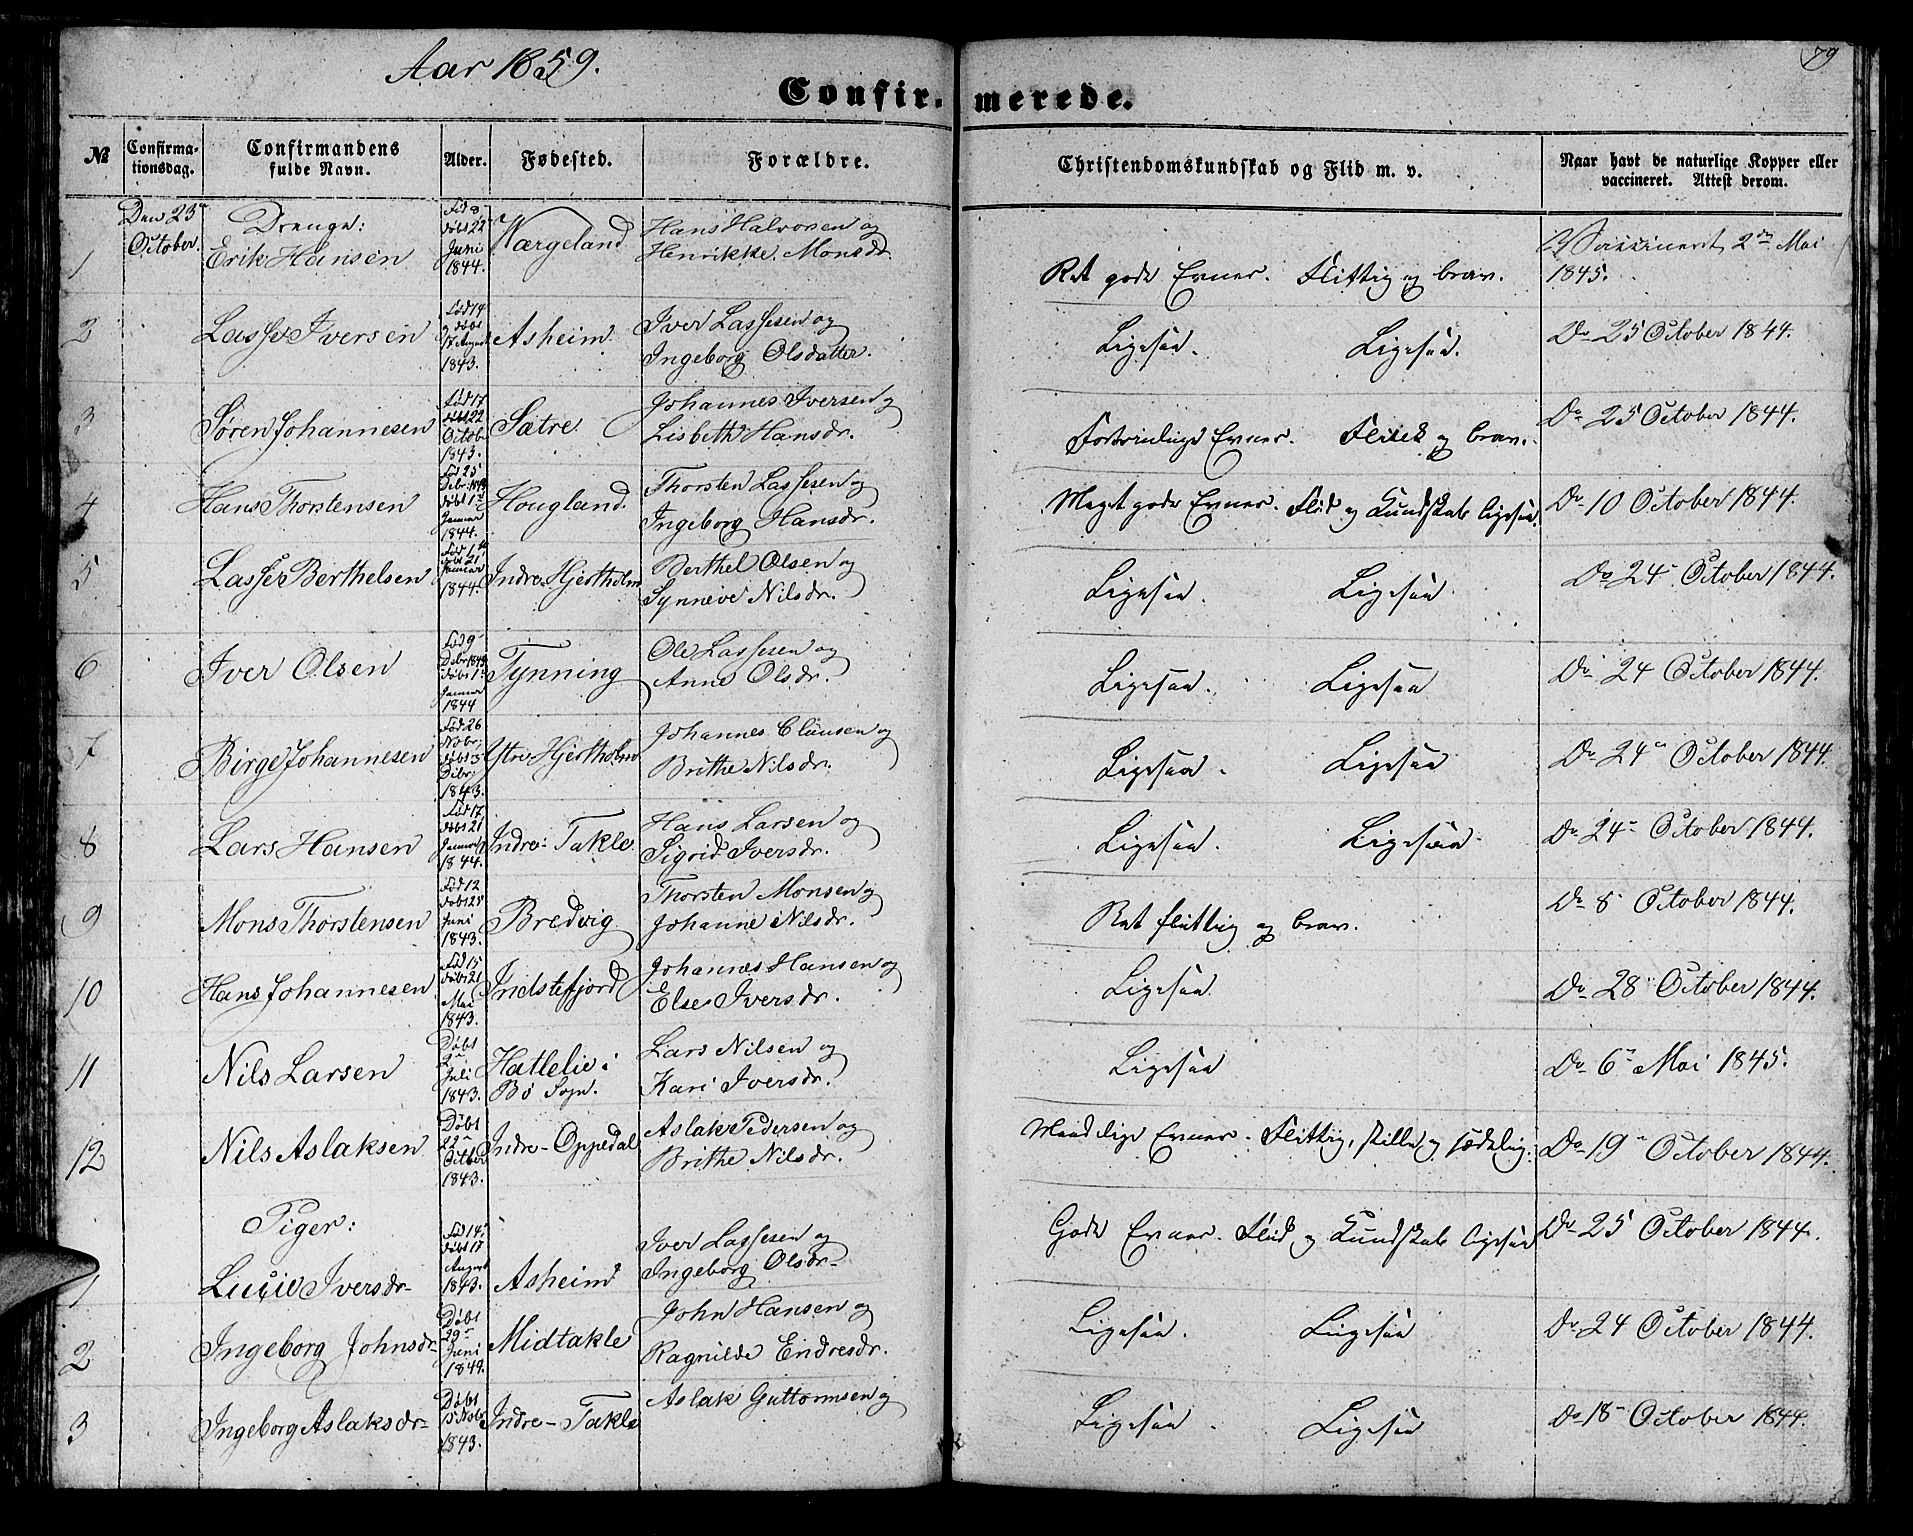 Aar 1859.
79
Confir- merede.
№
Confirma-
tionsdag.
Confirmandens
fulde Navn.
Alder.
Fødested.
Forældre.
Christendomskundskab og Flid m. v.
Naar havt de naturlige Kopper eller
vaccineret. Attest derom.
Den 23de
October.
Drenge:
1 Erik Hansen
Fød 8,
døbt 22
Juni
1844.
Nærgeland
Hans Halvorsen og
Henrikke Monsdr.
Ret gode Evner. Flittig og brav.
Vaccineret 2den Mai
1845.
2 Lasse Iversen
Fød 14
døbt
17 August
1843.
Asheim
Iver Lassesen og
Ingeborg Olsdatter.
Ligesaa. Ligesaa.
Do 25 October 1844.
3 Søren Johannesen
Fød 17
døbt 22
Octob.
1843.
Sætre
Johannes Iversen og
Lisbeth Hansdr.
Fortrinlige Evner. Flink og brav.
Do 25 October 1844.
4 Hans Thorstensen
Fød 25
Debr. 1843
døbt 1ste
Januar
1844.
Hougland.
Thorsten Lassesen og
Ingeborg Hansdr.
Meget gode Evner. Flid og Kundskab ligesaa.
Do 10 October 1844.
5 Lasse Berthelsen
Fød 1ste
døbt 21
Januar
1844.
Indre-Hjertholm
Berthel Olsen og
Synneve Nilsdr.
Ligesaa. Ligesaa
Do 24 October 1844.
6 Iver Olsen
Fød 9
Debr 1843
døbt 1ste
Januar
1844
Tynning
Ole Lassesen og
Anne Olsdr.
Ligesaa. Ligesaa
Do 24 October 1844.
7 Birge Johannesen
Fød 26
Nobr.
døbt 5
Debr.
1843.
Ytre-Hjertholm
Johannes Clausen og
Brithe Nilsdr.
Ligesaa. Ligesaa
Do 24 October 1844.
8 Lars Hansen
Fød 17
døbt 21
Januar
1844.
Indre-Takle
Hans Larsen og
Sigrid Iversdr.
Ligesaa. Ligesaa.
Do 24 October 1844.
9 Mons Thorstensen
Fød 12
døbt 25
Juni
1843.
Bredvig
Thorsten Monsen og
Johanne Nilsdr.
Ret flittig og brav.
Do 8 October 1844.
10 Hans Johannesen
Fød 15
døbt 21
Mai
1843.
Indstefjord
Johannes Hansen og
Else Iversdr.
Ligesaa.
Do 28 October 1844.
11 Nils Larsen
Døbt
2
Juli
1843.
Hatlelie i
Bø Sogn.
Lars Nilsen og
Kari Iversdr.
Ligesaa
Do 6te Mai 1845.
12 Nils Aslaksen
Døbt
22
Octber
1843.
Indre-Oppedal
Aslak Pedersen og
Brithe Nilsdr.
Maadelige Evner. Flittig, stille og sædelig.
Do 19 October 1844.
Piger:
1 Lucie Iversdr
Fød 14,
døbt 17
August
1843.
Asheim
Iver Lassesen og
Ingeborg Olsdr
Gode Evner. Flid og Kundskab ligesaa
Do 25 October 1844.
2 Ingeborg Johnsdr
Døbt
29
Juni
1844.
Midtakle
John Hansen og
Ragnilde Endresdr.
Ligesaa. Ligesaa
Do 24 October 1844.
3 Ingeborg Aslaksdr
Døbt
5 Nobr
1843.
Indre-Takle
Aslak Guttormsen og
Ligesaa. Ligesaa
Do 18 October 1844.